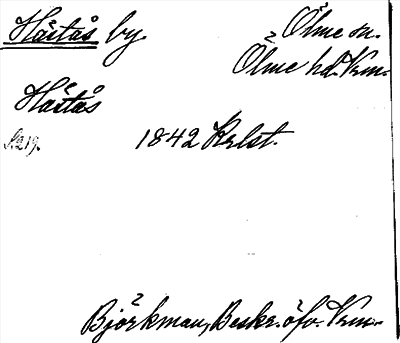 Hästås by.
Ölme sn.
Ölme hd. Vrm.
Hästås
S. 219.
1842 Krlst.
Björkman, Beskr. öfv. Vrm.